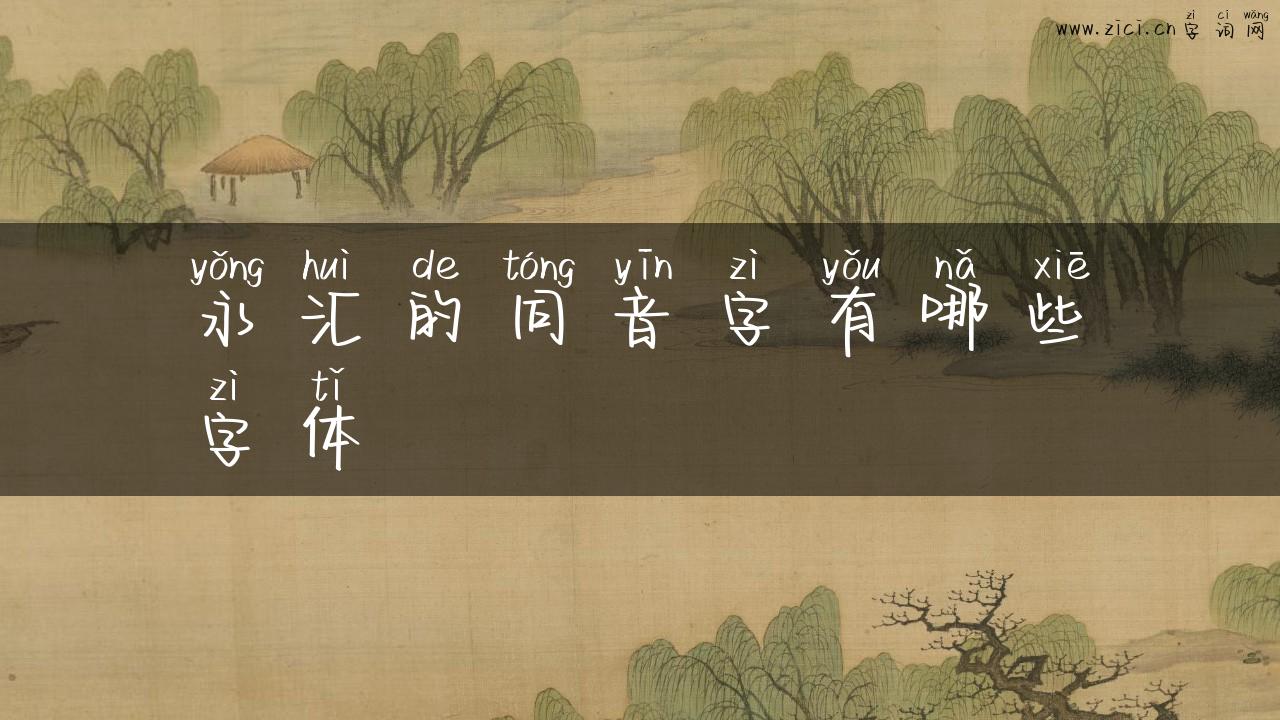 zì cí wǎng
www.zici.cn 字词网
yǒng huì de tóng yīn zì yǒu nǎ xiē
永汇的同音字有哪些
zì tǐ
字体